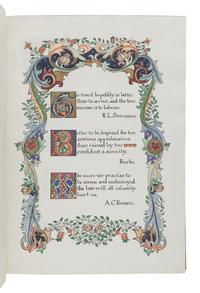 To travel hopefully is better
than to arrive, and the true
success is to labour.
R. L. Stevenson.
Better to be despised for too
anxious apprehensions
than ruined by too
confident a security.
Burke.
The more we practise to
be serene and undismayed,
the less will all calamity
hurt us.
A. C. Benson.